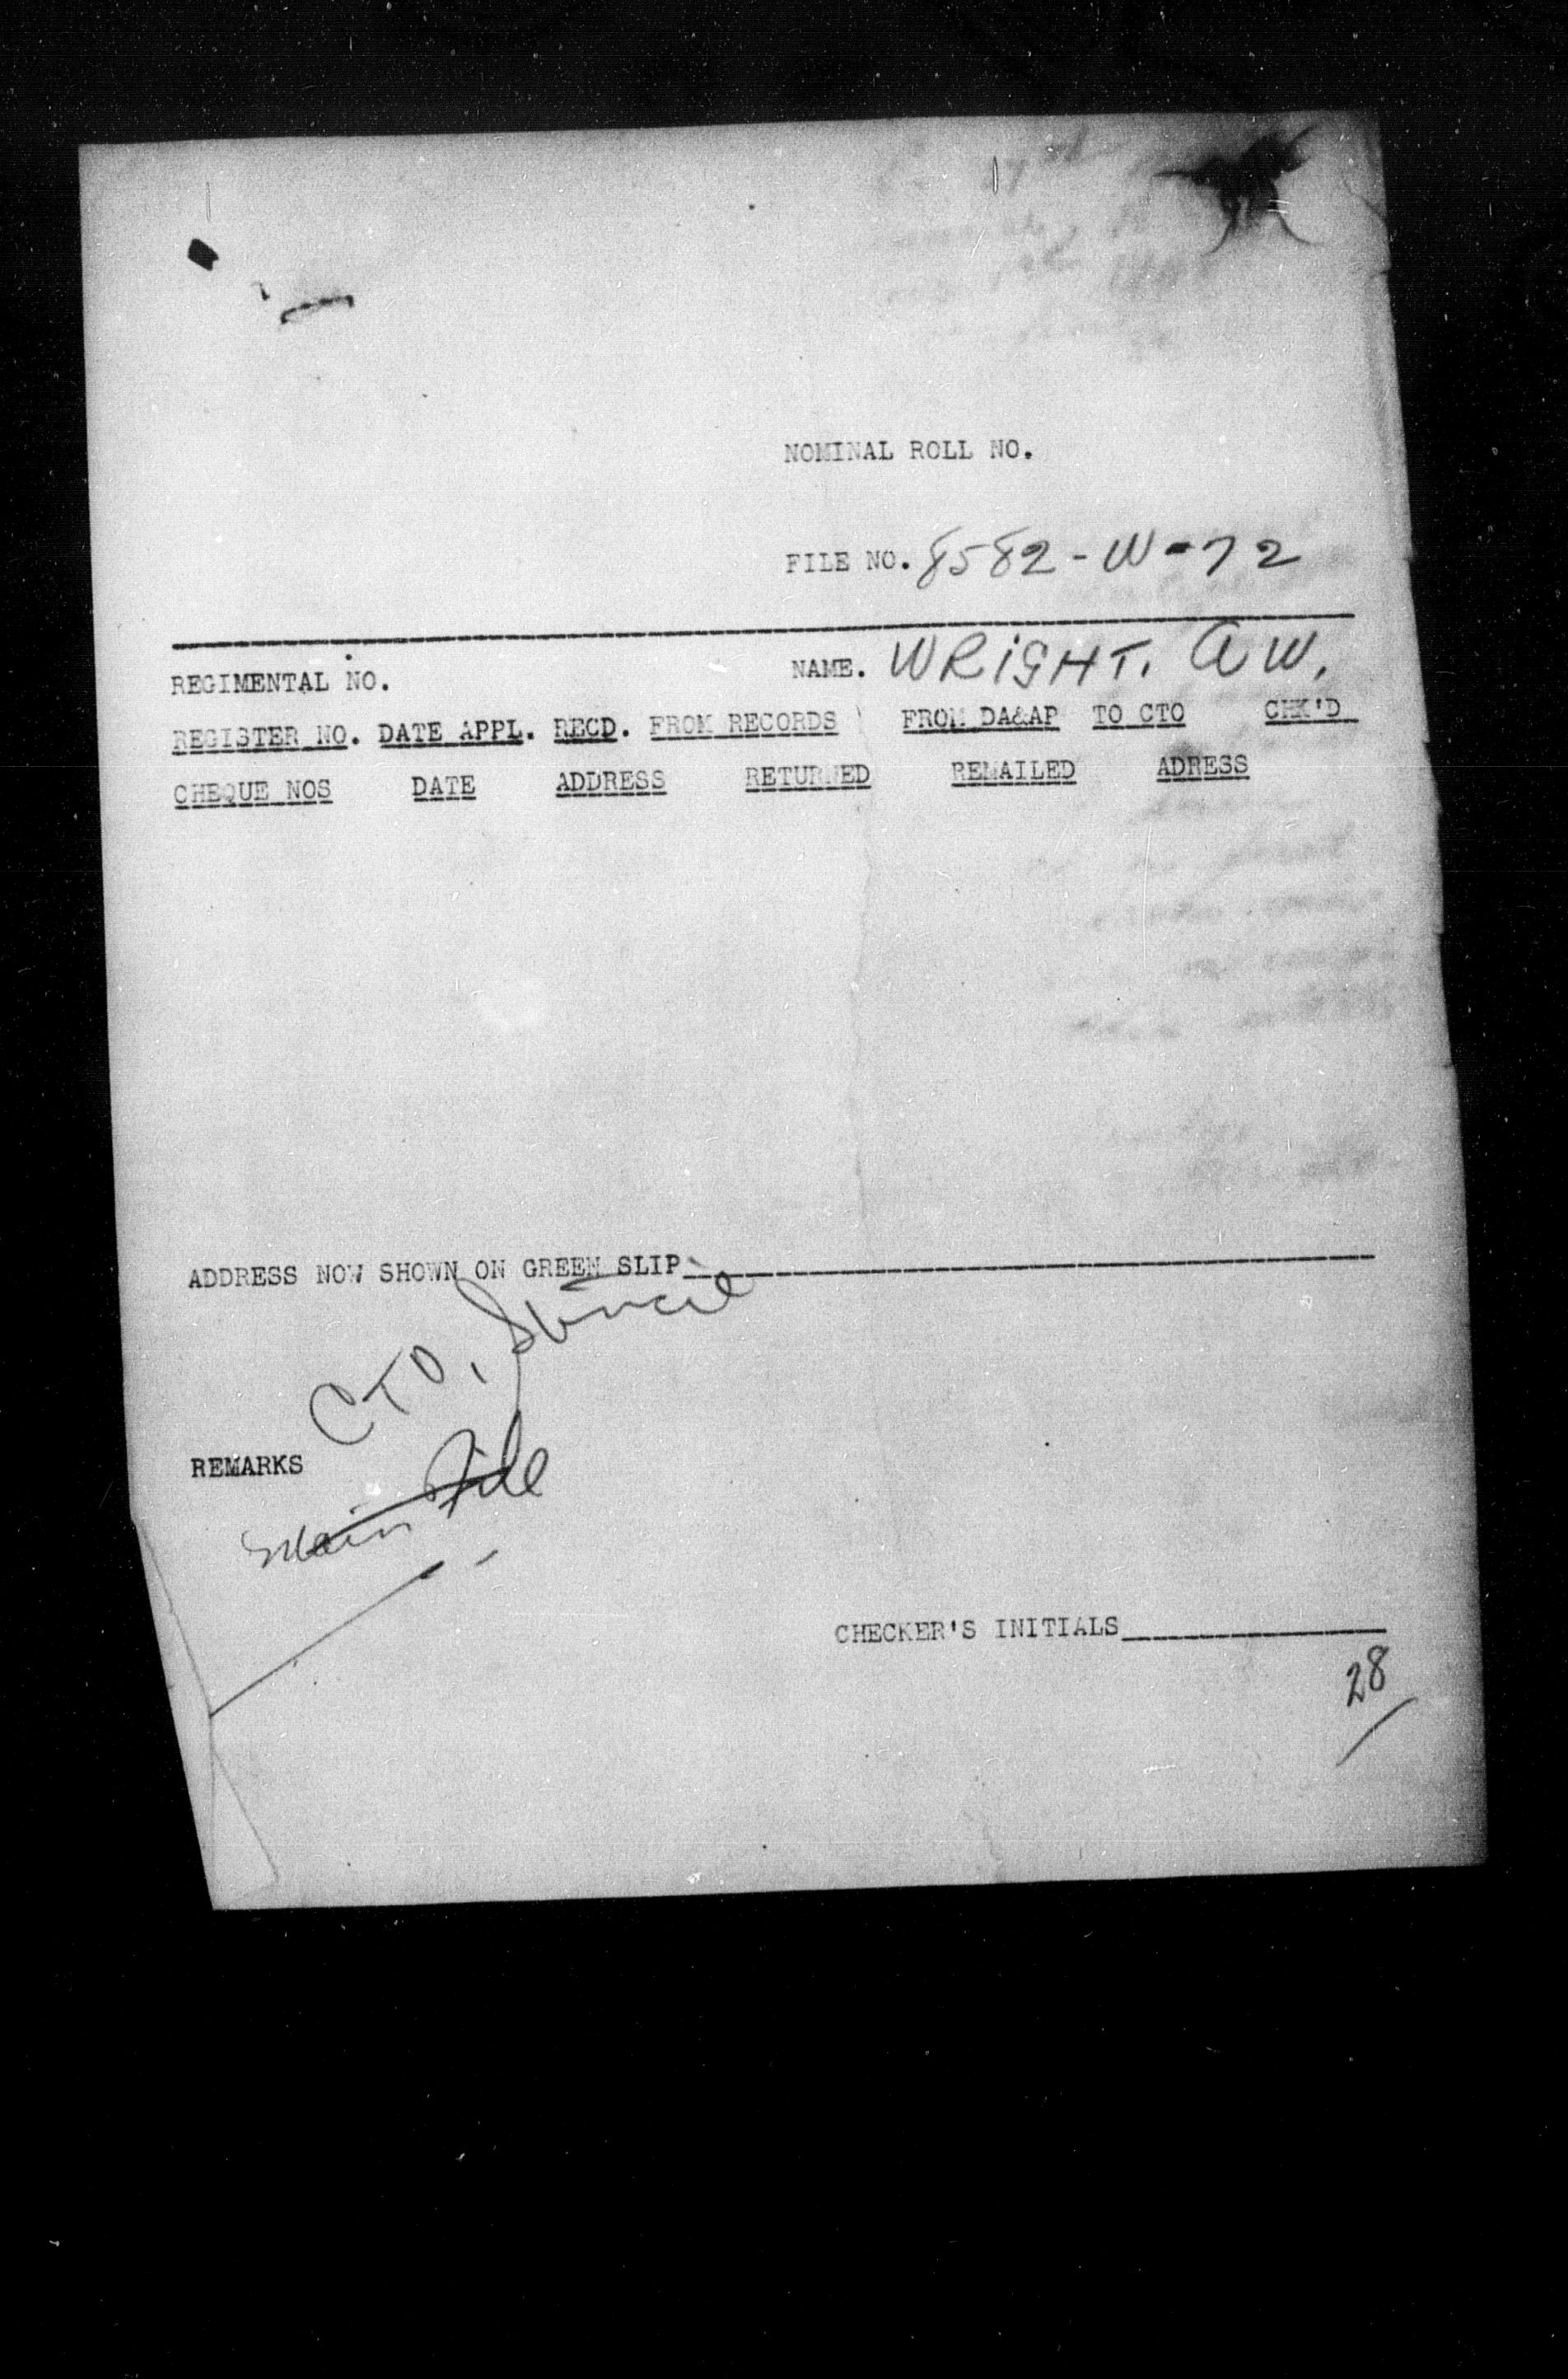 NOMINAL ROLL NO.
FILE NO. 8582-W-72
REGIMENTAL NO. NAME. WRIGHT. A W.
REGISTER NO. DATE APPL. RECD. FROM RECORDS FROM DA&AP TO CTO CHK'D
CHEQUE NOS DATE ADDRESS RETURNED REMAILED ADRESS
ADDRESS NOW SHOWN ON GREEN SLIP
CTO, Stencil
REMARKS
Main File
CHECKER'S INITIALS
28